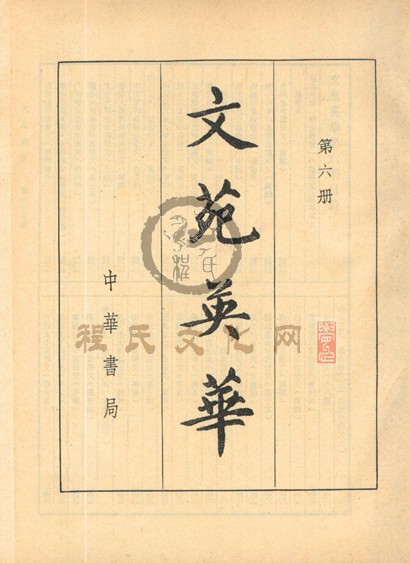 第六册
文苑英華
中華書局
程氏文化网